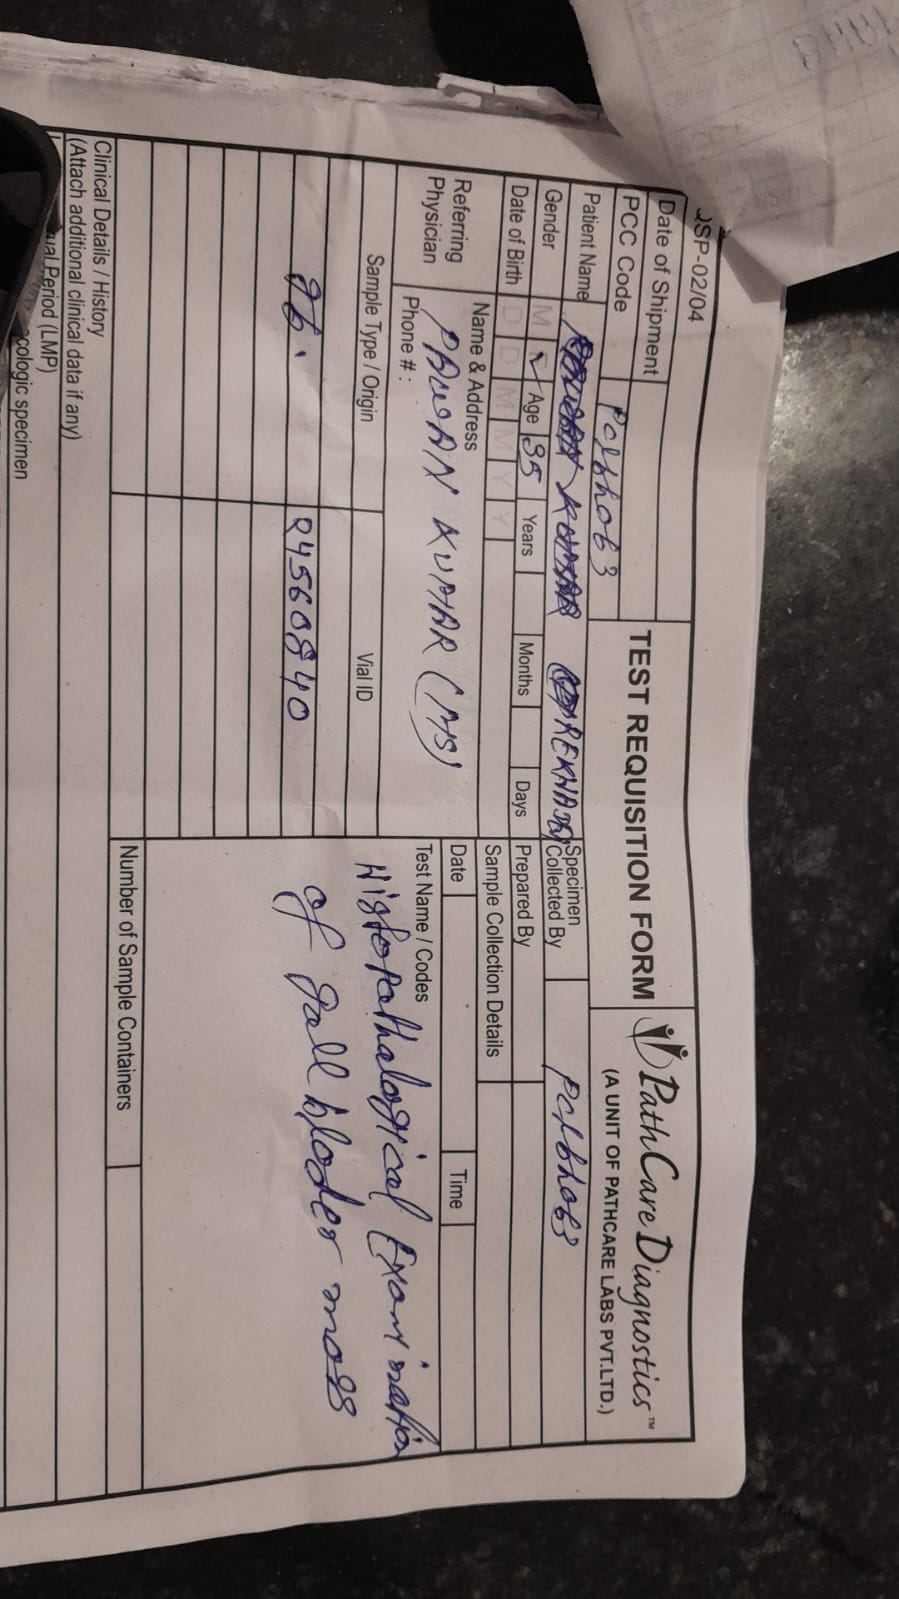 QSP-02/04
Date of Shipment
PCC Code
TEST REQUISITION FORM
PathCare Diagnostics™
(A UNIT OF PATHCARE LABS PVT.LTD.)
Patient Name REKHA
Specimen Collected By
Gender M Age 35 Years Months Days
Prepared By
Date of Birth D D M M Y Y
Sample Collection Details
Referring Physician
Name & Address
PAWAN KUMAR (MS)
Phone # :
Date Time
Sample Type / Origin Vial ID
Test Name / Codes
Q4560840
Histopathalogical Examination
of gall blader mass
Number of Sample Containers
Clinical Details / History
(Attach additional clinical data if any)
Period (LMP)
cologic specimen